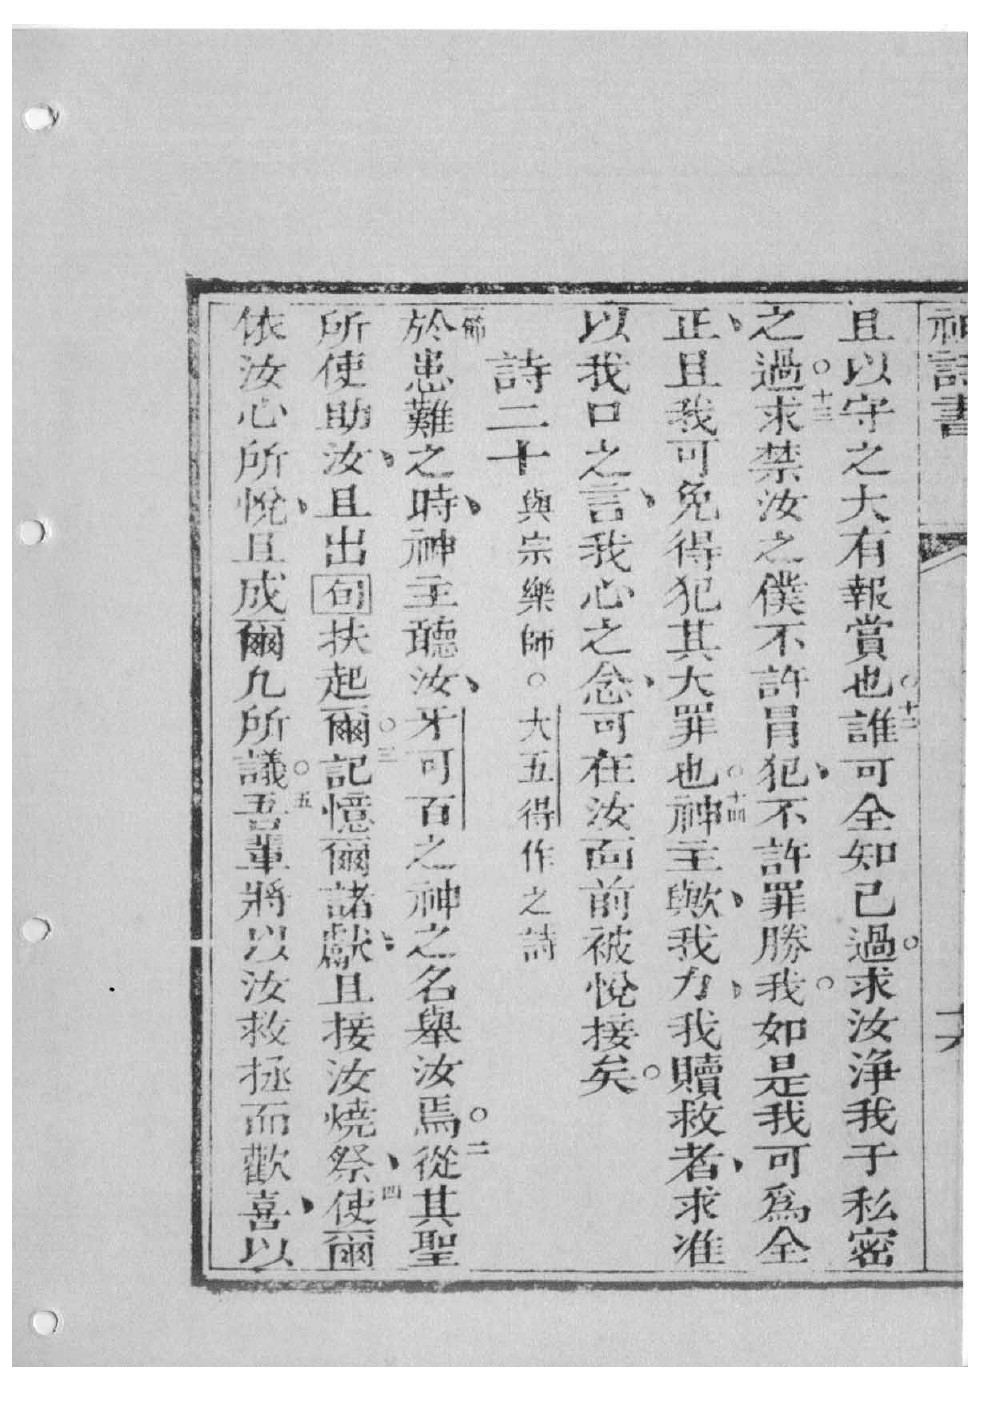 神詩書
十六
且以守之大有報賞也○十二誰可全知已過○求汝淨我于私密
之過○十三求禁汝之僕不許冐犯、不許罪勝我○如是我可爲全
正、且我可免得犯其大罪也○十四神主歟、我力、我贖救者、求准
以我口之言、我心之念、可在汝面前被悅接矣○
詩二十 與宗樂師○大五得作之詩
節於患難之時、神主聽汝、牙可百之神之名舉汝焉○二從其聖
所使助汝、且出句扶起爾○三記憶爾諸獻、且接汝燒祭、四使爾
依汝心所悅、且成爾凢所議○五吾輩將以汝救拯而歡喜、以